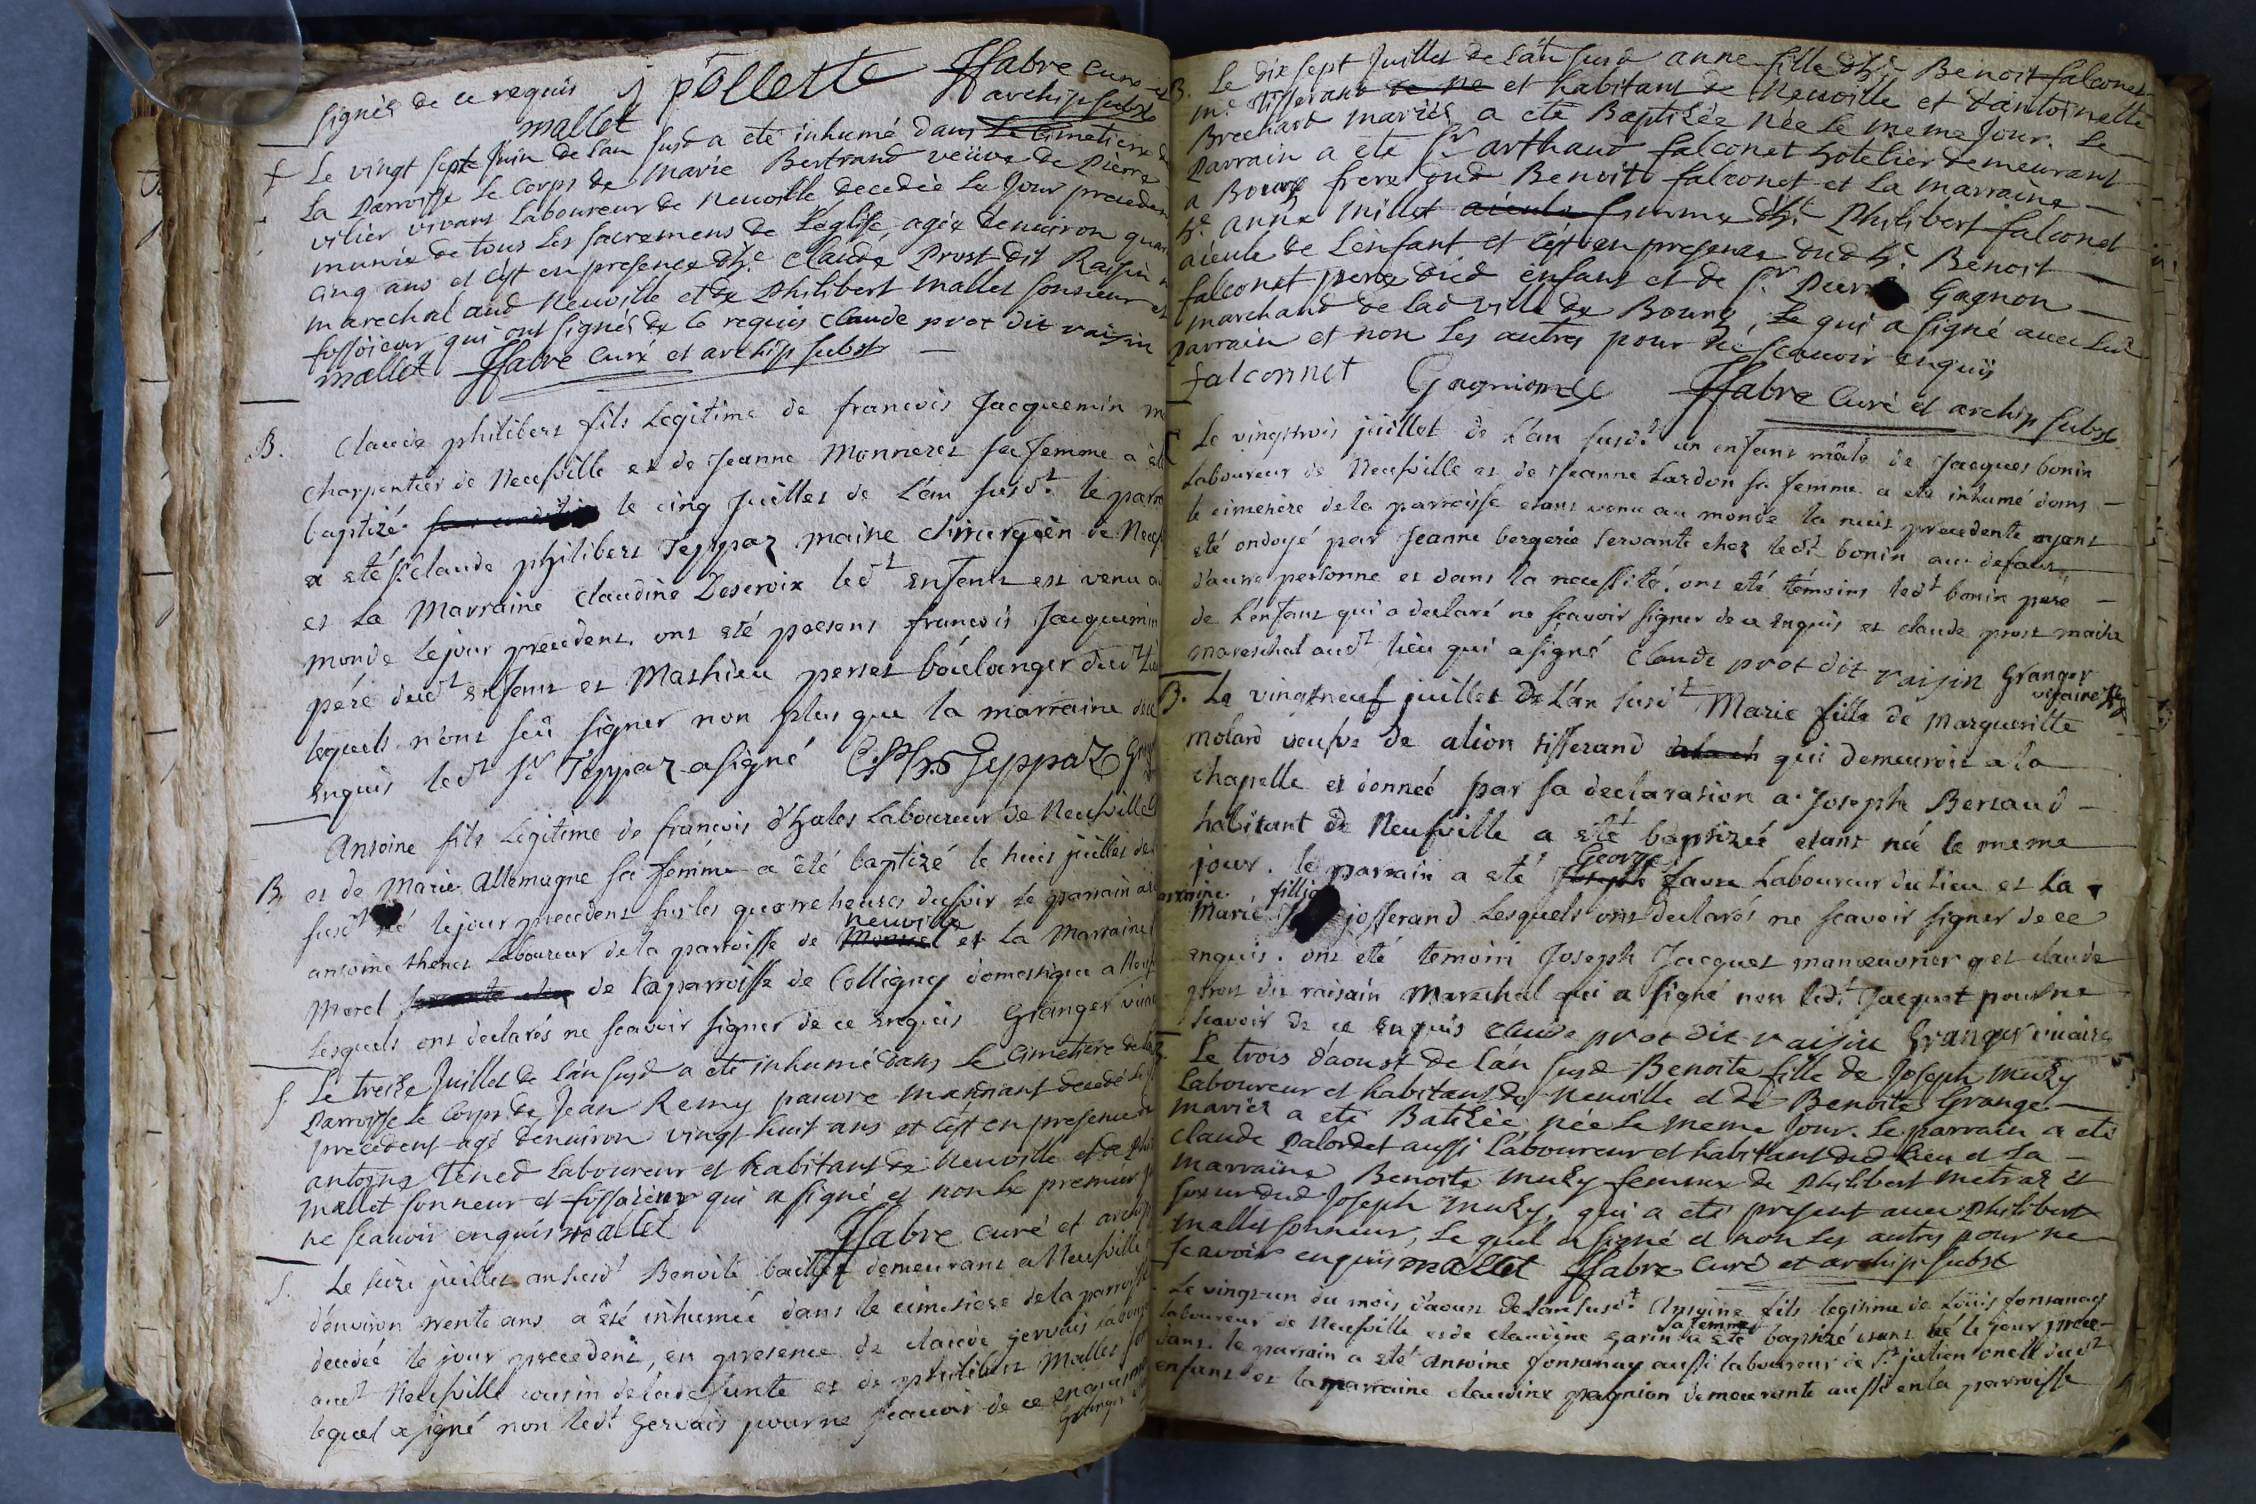 signés de ce requis j pollette ffabre curé et
mallet archip subst
f Le vingt sept Juin de l'an susd a eté inhumé dans le Cimetiere de
La Parroisse Le Corps de Marie Bertrand veüve de Pierre
vilier vivant Laboureur de Neuville decedée Le Jour preceden
munie de tous Les sacremens de L'eglise agée denviron quar
cinq ans et c'est en presence d'he Claude Prost dit Raisin
marechal aud Neuville et de Philibert Mallet sonneur et
fossöieur qui ont signés de ce requis Claude prot dit raisin
mallet ffabre Curé et archip subst
B. Claude philibert fils Legitime de francois Jacquemin m
charpentier de Neufville et de Jeanne Monneret sa femme a été
baptizé le cinq Juillet de L'an susd.t le parra
a eté Sr Claude philibert Teppaz maitre chirurgien de Neuf
et La Marraine Claudine Descroix led.t enfant est venu au
monde Le jour precedent. ont eté presens francois Jacquemin
pere dud.t enfant et Mathieu perret boulanger dud.t lieu
lequels n'ont sçû signer non plus que la marraine de ce
enquis led.t Sr Teppaz a signé C Ph Teppaz
B. Antoine fils Legitime de francois d'hales Laboureur de Neufville
et de Marie Allemagne sa femme a êté baptizé le huit juillet de
susd.t né le jour precedent sur les quatre heures du soir Le parrain a
antoine thenet Laboureur de la parroisse de neuville et La Marraine
Morel de la parroisse de Colligny domestique a Neuf
Lesquels ont declarés ne scavoir signer de ce enquis Granger vicai
f Le treize Juillet de l'an susd a eté inhumé dans Le Cimetiere de la
Parroisse Le Corps de Jean Remy pauvre mendiant decedé Le
precedent agé denviron vingt huit ans et c'est en presence d
antoine Tened Laboureur et habitant de Neuville et de Phi
Mallet sonneur et fossoieur qui a signé et non Le premier p
ne scavoir enquis mallet ffabre curé et archip
f. Le seize juillet an susd.t Benoite baillet demeurant a Neufville
d'environ trente ans a êté inhumée dans le cimetiere de la parroisse
decedée le jour precedent, en presence de claude gervais labour
aud.t Neufville cousin de la defunte et de philibert Mallet
lequel a signé non led.t Gervais pour ne scavoir de ce enquis
Granger
B. Le dix sept Juillet de L'an susd anne fille d'he Benoit falconet
me Tifferand et habitant de Neuville et d'antoinette
Brechard mariés, a eté Baptisée née Le meme Jour. Le
Parrain a eté Sr arthaud falconet hotelier demeurant
a Bourg frere dud Benoit falconet et La marraine
he. anne Millet femme d'he Philibert falconet
aieule de L'enfant et c'est en presence dud he. Benoit
falconet pere dud enfant et de Sr. Pierre Gagnon
marchand de lad ville de Bourg, qui a signé avec led
parrain et non Les autres pour ne scavoir enquis
falconnet Gagnion ffabre Curé et archip subst
f Le vingt trois juillet de L'an susd.t un enfant mâle de Jacques bonin
Laboureur de Neufville et de Jeanne Lardon sa femme a eté inhumé dans
le cimetiere de la parroisse etant venu au monde la nuit precedente ayant
eté ondoyé par Jeanne bergerie servante chez led.t bonin au defaut
d'autre personne et dans la necessité. ont eté témoins led.t bonin pere
de L'enfant qui a declaré ne scavoir signer de ce enquis et claude prost maitre
mareschal aud.t lieu qui a signé Claude prot dit raisin Granger
vicaire
B. Le vingt neuf juillet de L'an susd.t Marie fille de Margueritte
Molard veufve de alion tifferand qui demeuroit a la
chapelle et donneé par sa declaration a Joseph Bertaud
habitant de Neufville a eté baptizeé etant né le meme
jour. le parrain a eté George favre Laboureur du lieu et la
marraine Marie fillie josserand Lesquels ont declarés ne scavoir signer de ce
enquis. ont eté temoin Joseph Jacquet manœuvrier et claude
prost dit raisain Mareschal qui a signé non led.t Jacquet pour ne
scavoir de ce enquis claude prot dit raisin Granger vicaire
Le trois d'aoust de l'an susd Benoite fille de Joseph Muzy
Laboureur et habitant de Neuville et de Benoite Grange
mariés a eté Batisée née Le meme Jour. Le parrain a eté
Claude Palordet aussi Laboureur et habitant dud Lieu et La
marraine Benoite muzy femme de Philibert metraz et
sœur dud Joseph Muzy, qui a eté present avec Philibert
Mallet sonneur, Le quel a signé et non Les autres pour ne
scavoir enquis mallet ffabre Curé et archip subst
Le vingt-un du mois d'aout de L'an susd.t Antoine fils legitime de Loüis fontanay
laboureur de Neufville et de claudine garin sa femme a eté baptizé etant né le jour prece-
dant. le parrain a eté antoine fontanay aussi laboureur de St julien oncle dud.t
enfant et la marraine claudine pagnion demeurante aussi en la parroisse